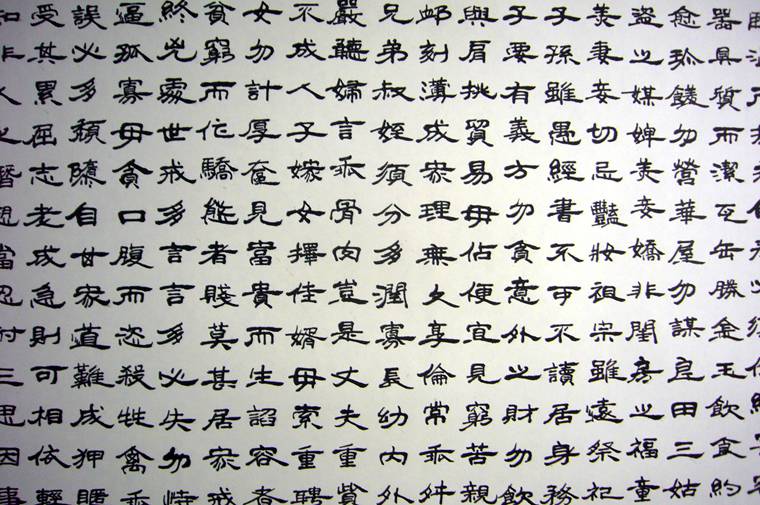 器具質而潔瓦缶勝金玉飲食約
愈珎饈勿營華屋勿謀良田三姑
盜之媒婢美妾嬌非閨房之福童
美妻妾切忌豔妝祖宗雖遠祭祀
子孫雖愚經書不可不讀居身務
子要有義方勿貪意外之財勿飲
與肩挑貿易毋佔便宜見窮苦親
卹刻薄成家理無久享倫常乖舛
兄弟叔姪須分多潤寡長幼內外
嚴聽婦言乖骨肉豈是丈夫重貲
不成人子嫁女擇佳婿毋索重聘
女勿計厚奩見富貴而生諂容者
貧窮而作驕態者賤莫甚居家戒
終凶處世戒多言言多必失勿恃
逼孤寡毋貪口腹而恣殺牲禽乖
誤必多頹隳自甘家道難成狎暱
受其累屈志老成急則可相依輕
知非人之譖愬當忍耐三思因事